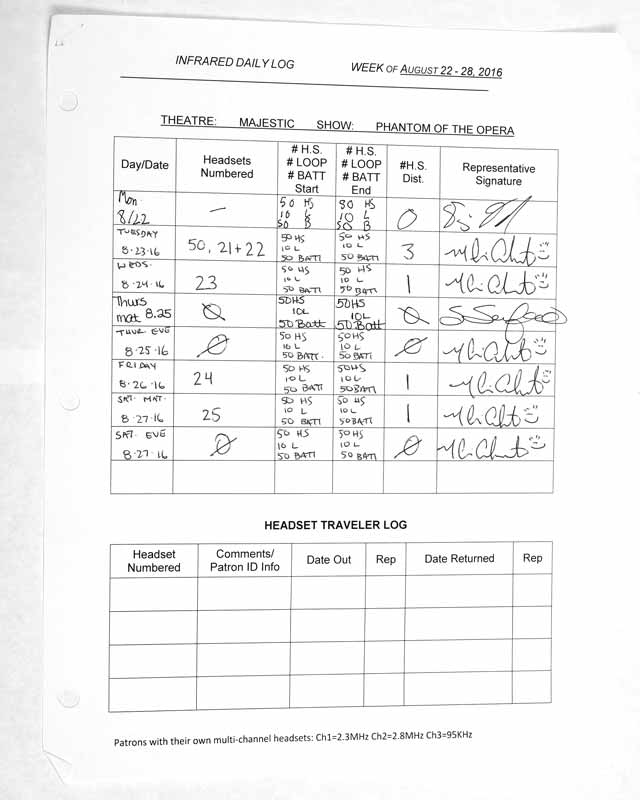 INFRARED DAILY LOG WEEK OF AUGUST 22 - 28, 2016
THEATRE: MAJESTIC SHOW: PHANTOM OF THE OPERA
Day/Date Headsets Numbered # H.S. # LOOP # BATT Start # H.S. # LOOP # BATT End #H.S. Dist. Representative Signature
Mon. 8/22 — 50 HS 10 L 50 B 50 HS 10 L 50 B 0
TUESDAY 8-23-16 50, 21+22 50 HS 10 L 50 BATT 50 HS 10 L 50 BATT 3
WEDS. 8-24-16 23 50 HS 10 L 50 BATT 50 HS 10 L 50 BATT 1
Thurs mat 8.25 Ø 50HS 10L 50 Batt 50HS 10L 50 Batt Ø
THUR EVE 8-25-16 Ø 50 HS 10 L 50 BATT. 50 HS 10 L 50 BATT Ø
FRIDAY 8-26-16 24 50 HS 10 L 50 BATT 50HS 10 L 50BATT 1
SAT. MAT. 8-27-16 25 50 HS 10 L 50 BATT 50 HS 10 L 50BATT 1
SAT. EVE 8-27-16 Ø 50 HS 10 L 50 BATT 50 HS 10 L 50 BATT Ø
HEADSET TRAVELER LOG
Headset Numbered Comments/ Patron ID Info Date Out Rep Date Returned Rep
Patrons with their own multi-channel headsets: Ch1=2.3MHz Ch2=2.8MHz Ch3=95KHz